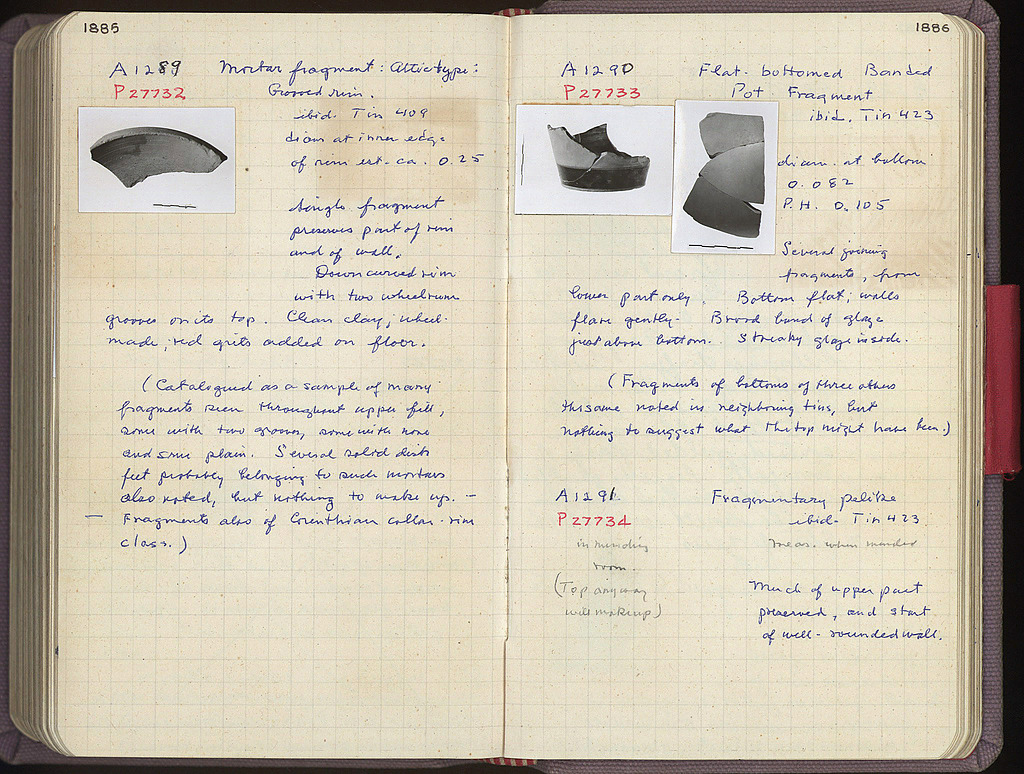 1885
A 1289 Mortar fragment: Attic type:
P 27732 Grooved rim.
ibid. Tin 409
diam at inner edge
of rim est. ca. 0.25
Single fragment
preserves part of rim
and of wall.
Down curved rim
with two wheelrun
grooves on its top. Clean clay; wheel-
made; red grits added on floor.
(Catalogued as a sample of many
fragments seen throughout upper fill,
some with two grooves, some with none
and some plain. Several solid disk
feet probably belonging to such mortars
also noted, but nothing to make up. —
— Fragments also of Corinthian collar-rim
class.)
1886
A 1290 Flat-bottomed Banded
P 27733 Pot Fragment
ibid. Tin 423
diam. at bottom
0.082
P.H. 0.105
Several joining
fragments, from
lower part only. Bottom flat; walls
flare gently. Broad band of glaze
just above bottom. Streaky glaze inside.
(Fragments of bottoms of three others
the same noted in neighboring tins, but
nothing to suggest what the top might have been.)
A 1291 Fragmentary pelike
P 27734 ibid. Tin 423
in mending meas. when mended
room.
(Top anyway
will make up)
Much of upper part
preserved, and start
of well-rounded wall.